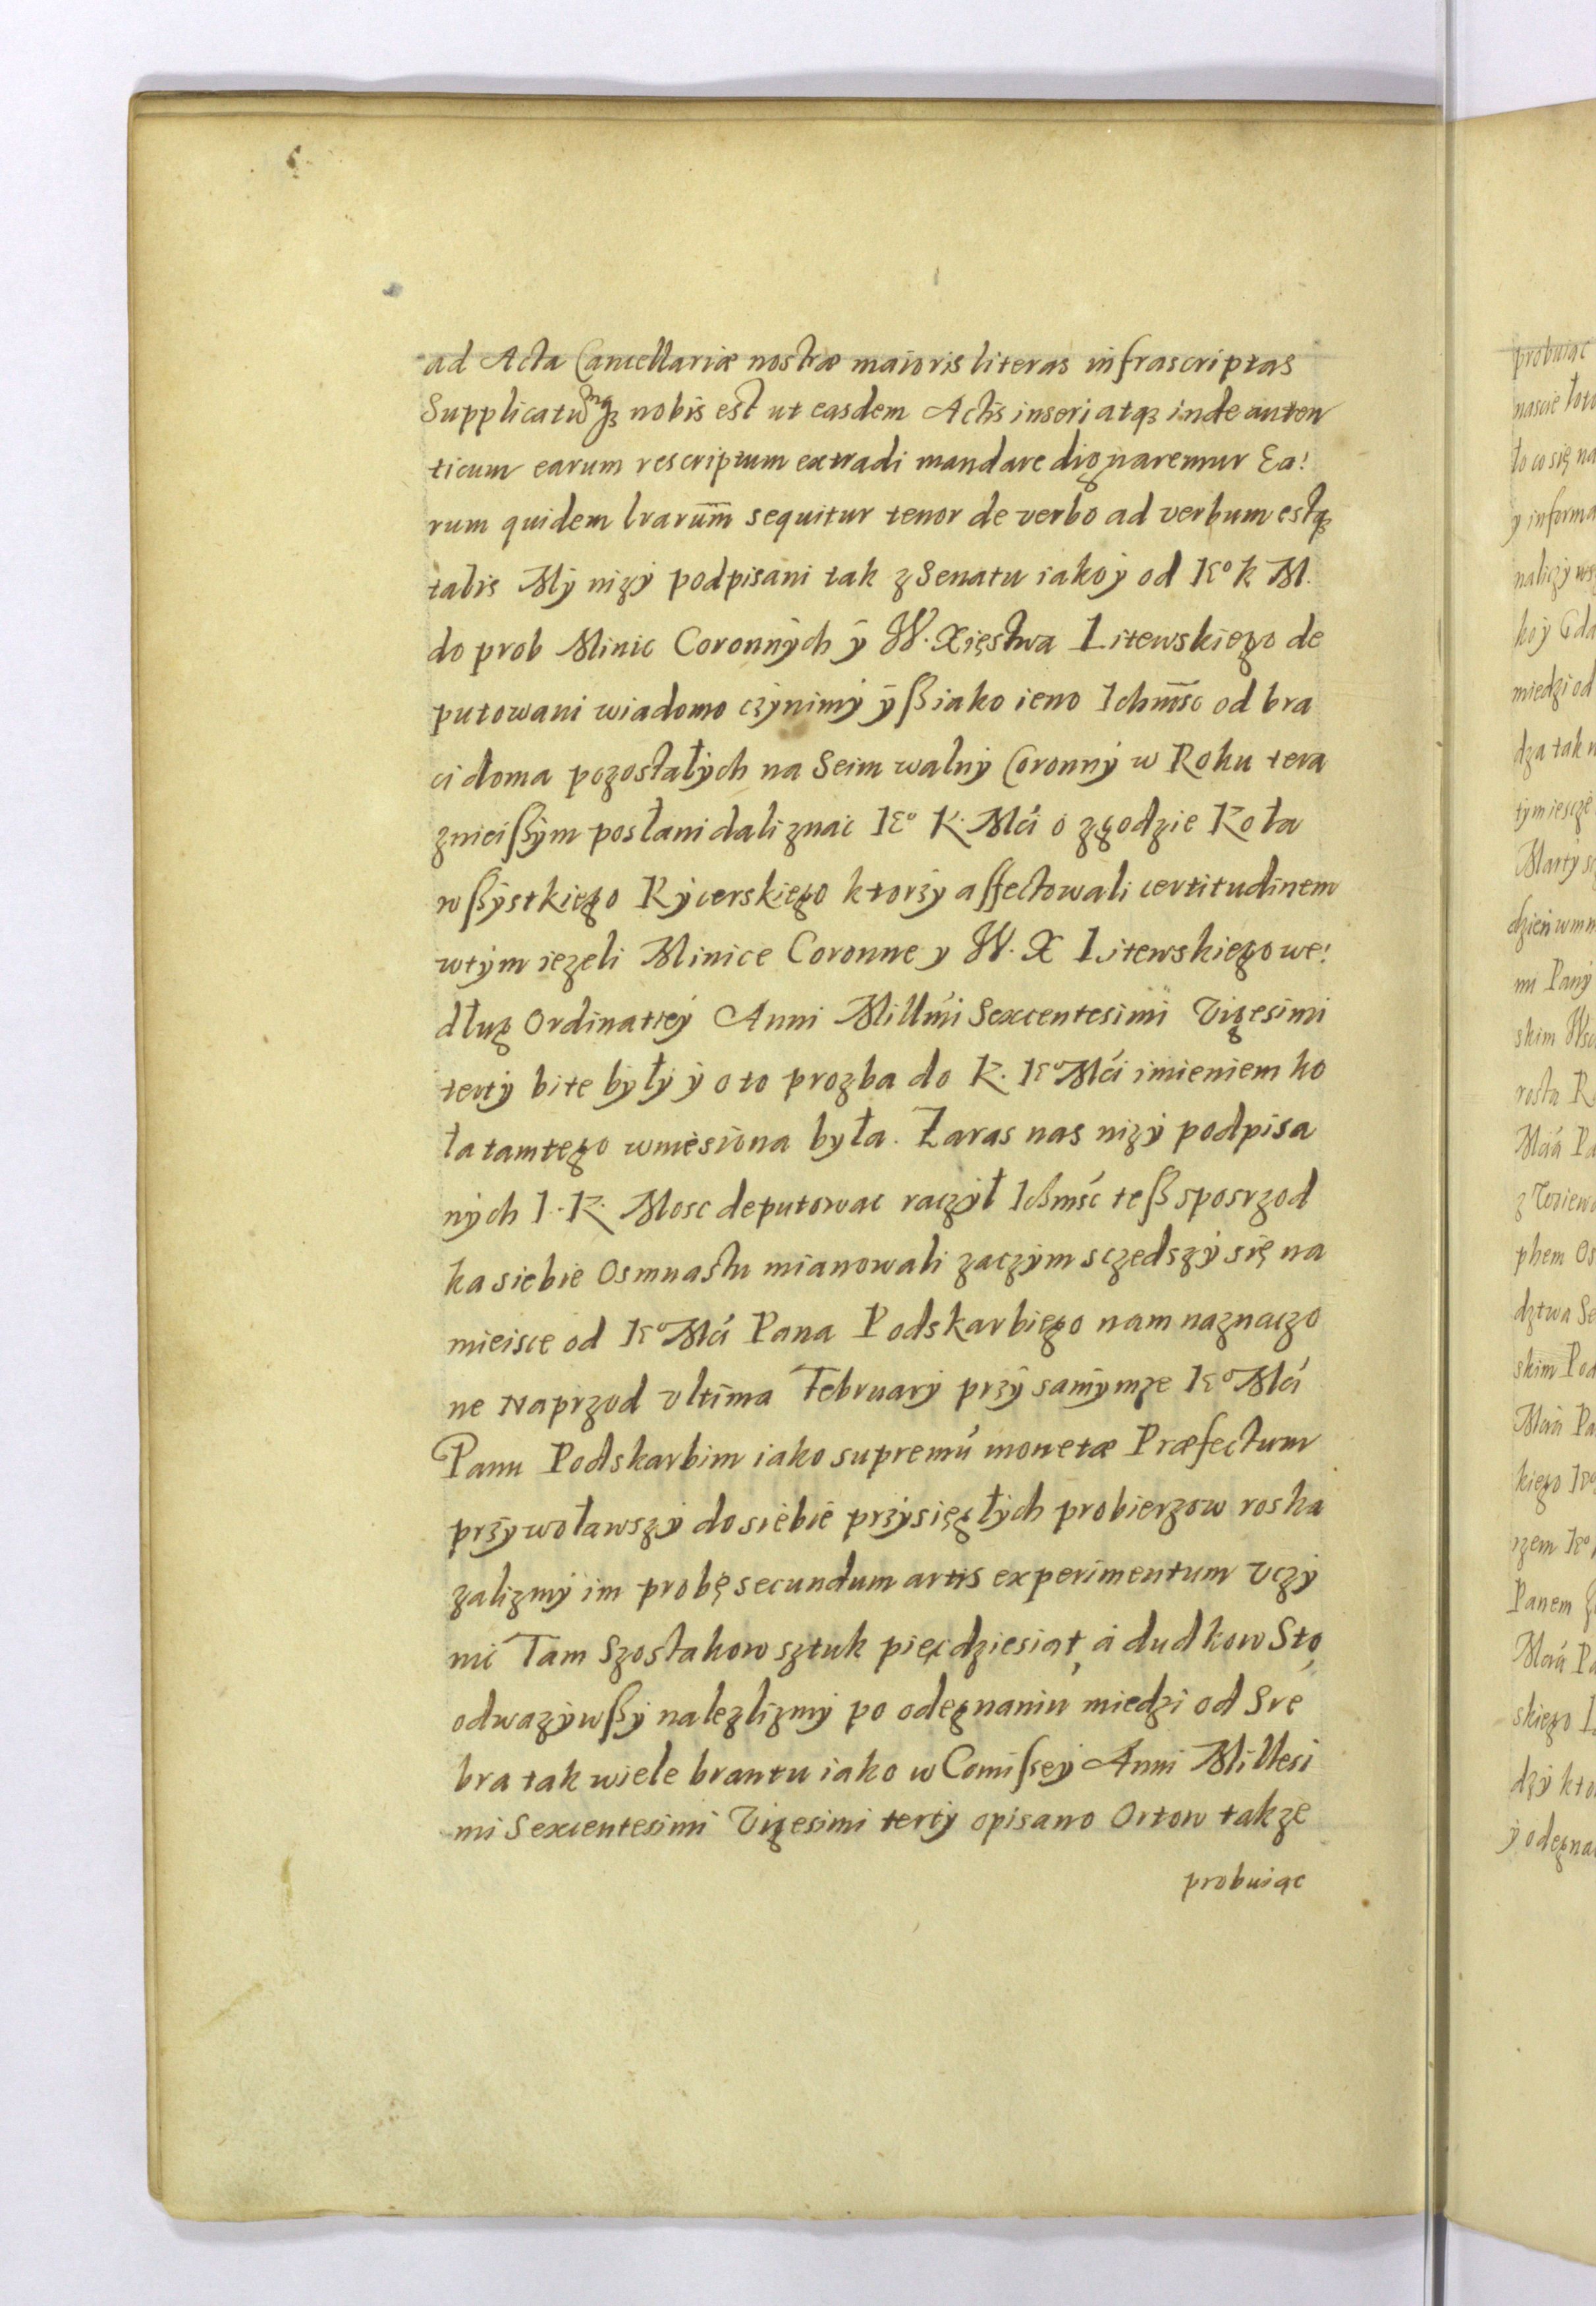 ad Acta Cancellariæ nostræ maioris literas infrascriptas
Supplicatũmqꝫ nobis est ut easdem Actis inseri atqꝫ inde auten
ticum earum rescriptum extradi mandare dignaremur Ea:
rum quidem lrarum̅ sequitur tenor de verbo ad verbum estqꝫ
talis My niży podpisani tak z Senatu iako ÿ od Ieº k M.
do prob Minic Coronnÿch ÿ W. Xięstwa Litewskiego de
putowani wiadomo czÿnimÿ ÿß iako ieno Ichm̅sc od bra
ci doma pozostałÿch na Seim walnÿ Coronnÿ w Roku tera
znieißÿm posłani dali znac Ieº K. Mći o zgodzie Koła
wßÿstkiego Rÿcerskiego ktorzÿ affectowali certitudinem
wtÿm iezeli Minice Coronne y W. X Litewskiego we:
dług Ordinatieÿ Anni Millmi Sexcentesimi Vigesimi
tertÿ bite bÿłÿ ÿ o to prozba do K. Ieº Mći imieniem ko
ła tamtego wniesiona była. Zaras nas nizÿ podpisa
nÿch I. K. Mosc deputowac raczÿł Ichmść teß sposrzod
ka siebie Osmnastu mianowali zaczÿm sczedszÿ się na
mieisce od Ieº Mći Pana Podskarbiego nam naznaczo
ne Naprzod vltima Februarÿ przÿ samÿmze Ieº Mći
Panu Podskarbim iako supremú monetæ Præfectum
przÿwoławszÿ do siebie przÿsięgłÿch probierzow roska
zalizmÿ im probę secundum artis experimentum vczÿ
nić Tam Szostakow sztuk pięćdziesiąt, á dudkow Sto,
odwazÿwßÿ nalezlizmÿ po odegnaniu miedzi od Sre
bra tak wiele brantu iako w Comißieÿ Anni Millesi
mi Sexcentesimi Vigesimi tertÿ opisano Ortow takze
probuiąc